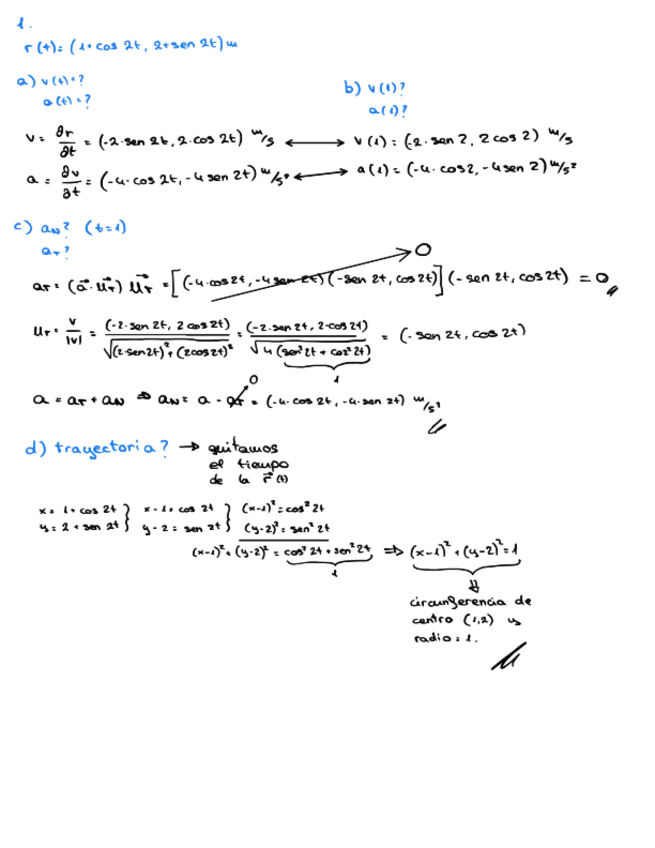 1.
r(t)= (1+cos 2t, 2+sen 2t) m
a) v(t)=?
a(t)=?
b) v(1)?
a(1)?
v = ∂r/∂t = (-2·sen 2t, 2·cos 2t) m/s ⟷ v(1) = (-2·sen 2, 2 cos 2) m/s
a = ∂v/∂t = (-4·cos 2t, -4 sen 2t) m/s² ⟷ a(1) = (-4·cos2, -4 sen 2) m/s²
c) aN? (t=1)
aT?
aT = (a⃗·u⃗T) u⃗T = [(-4·cos2t, -4 sen 2t)(-sen 2t, cos 2t)] (-sen 2t, cos 2t) = 0
0
uT = v/|v| = (-2·sen 2t, 2 cos 2t)/√((2·sen2t)²+(2cos2t)²) = (-2·sen 2t, 2·cos 2t)/√(4(sen²2t + cos²2t)) = (-sen 2t, cos 2t)
1
0
a = aT + aN ⇒ aN = a - aT = (-4·cos 2t, -4·sen 2t) m/s²
d) trayectoria? → quitamos
el tiempo
de la r⃗(t)
x = 1 + cos 2t } x - 1 = cos 2t } (x-1)² = cos² 2t
y = 2 + sen 2t } y - 2 = sen 2t } (y-2)² = sen² 2t
(x-1)² + (y-2)² = cos² 2t + sen² 2t ⇒ (x-1)² + (y-2)² = 1
1
circunferencia de
centro (1,2) y
radio = 1.